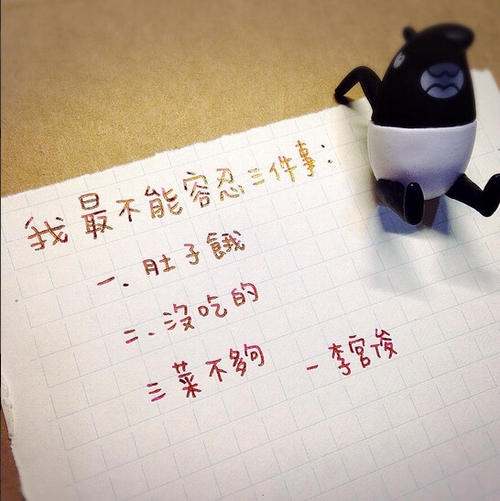 我最不能容忍三件事:
一.肚子餓
二.沒吃的
三菜不夠 -李宮俊